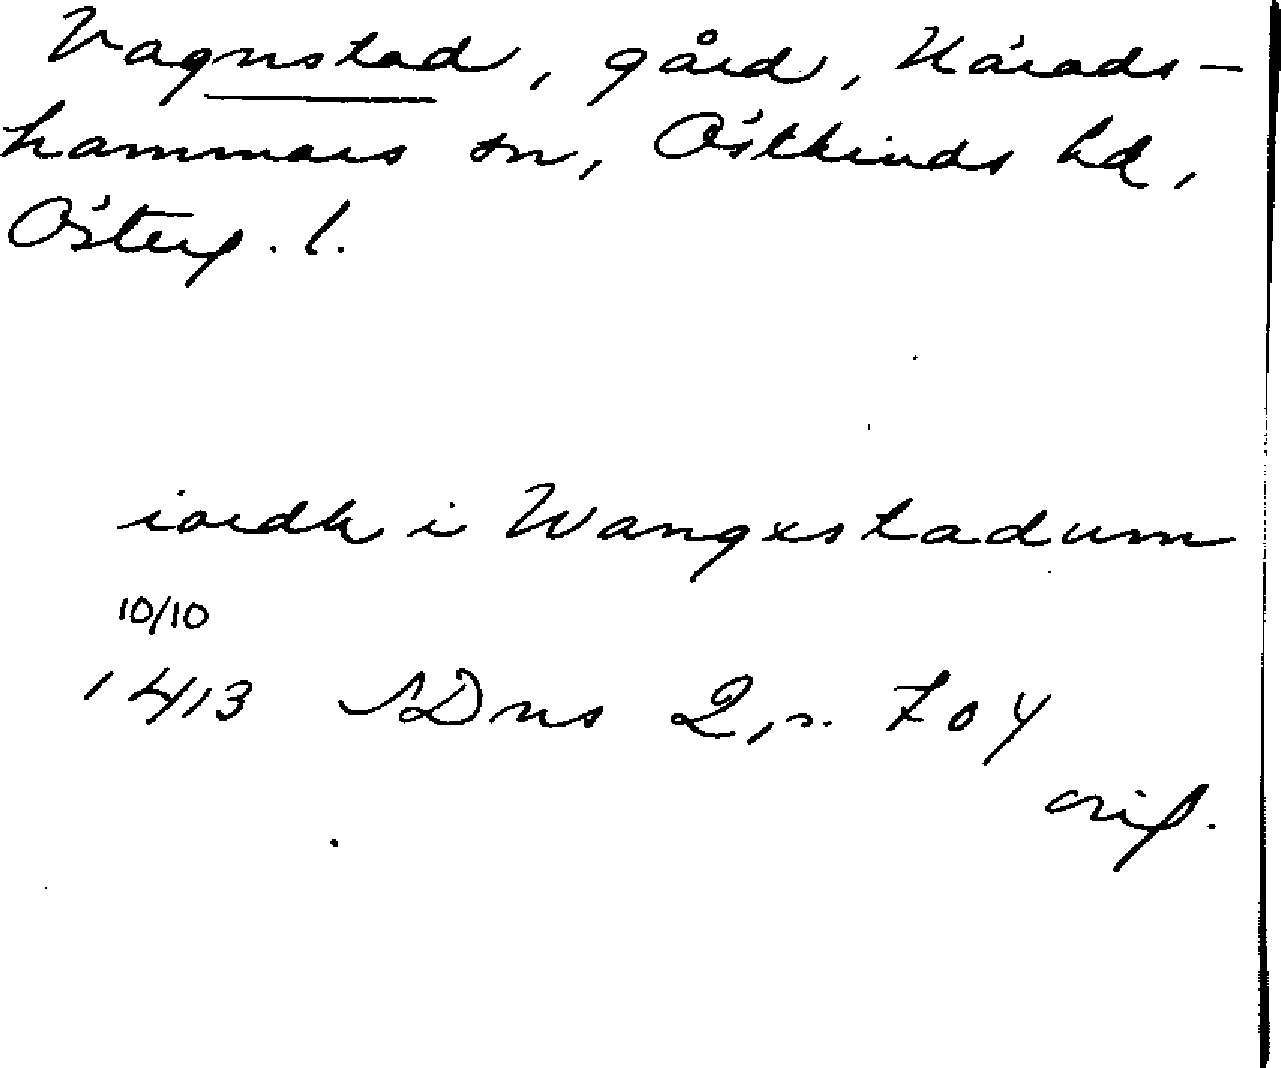 Vagnstad, gård, Härads-
hammars sn, Östkinds hd,
Österg. l.
iordh i Wangxstadum
10/10
1413 SDns 2, s. 704
orig.